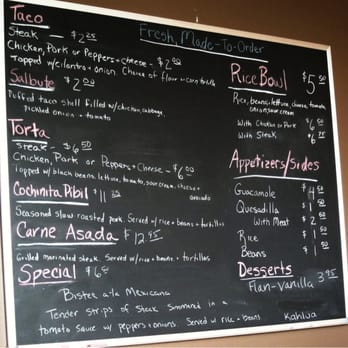 Fresh, Made-To-Order
Taco
Steak — $2.25
Chicken, Pork or Peppers + cheese - $2.00
Topped w/cilantro + onion. Choice of flour or corn tortilla
Salbute $2.00
Puffed taco shell filled w/chicken, cabbage,
pickled onion + tomato
Torta
Steak - $6.50
Chicken, Pork or Peppers + Cheese - $6.00
Topped w/black beans, lettuce, tomato, sour cream, cheese +
avocado
Cochinita Pibil $11
Seasoned slow roasted pork. Served w/rice + beans + tortillas
Carne Asada $12.95
Grilled marinated steak. Served w/rice + beans + tortillas
Special $6
Bistec a la Mexicana
Tender strips of steak simmered in a
tomato sauce w/ peppers + onions. Served w/ rice + beans
Rice Bowl $5.50
Rice, beans, lettuce, cheese, tomato,
onion, sour cream
With Chicken or Pork $6.50
With Steak $6.75
Appetizers/Sides
Guacamole $4.50
Quesadilla $1
With Meat $2
Rice $1
Beans $1
Desserts
Flan-Vanilla 3.95
Kahlua